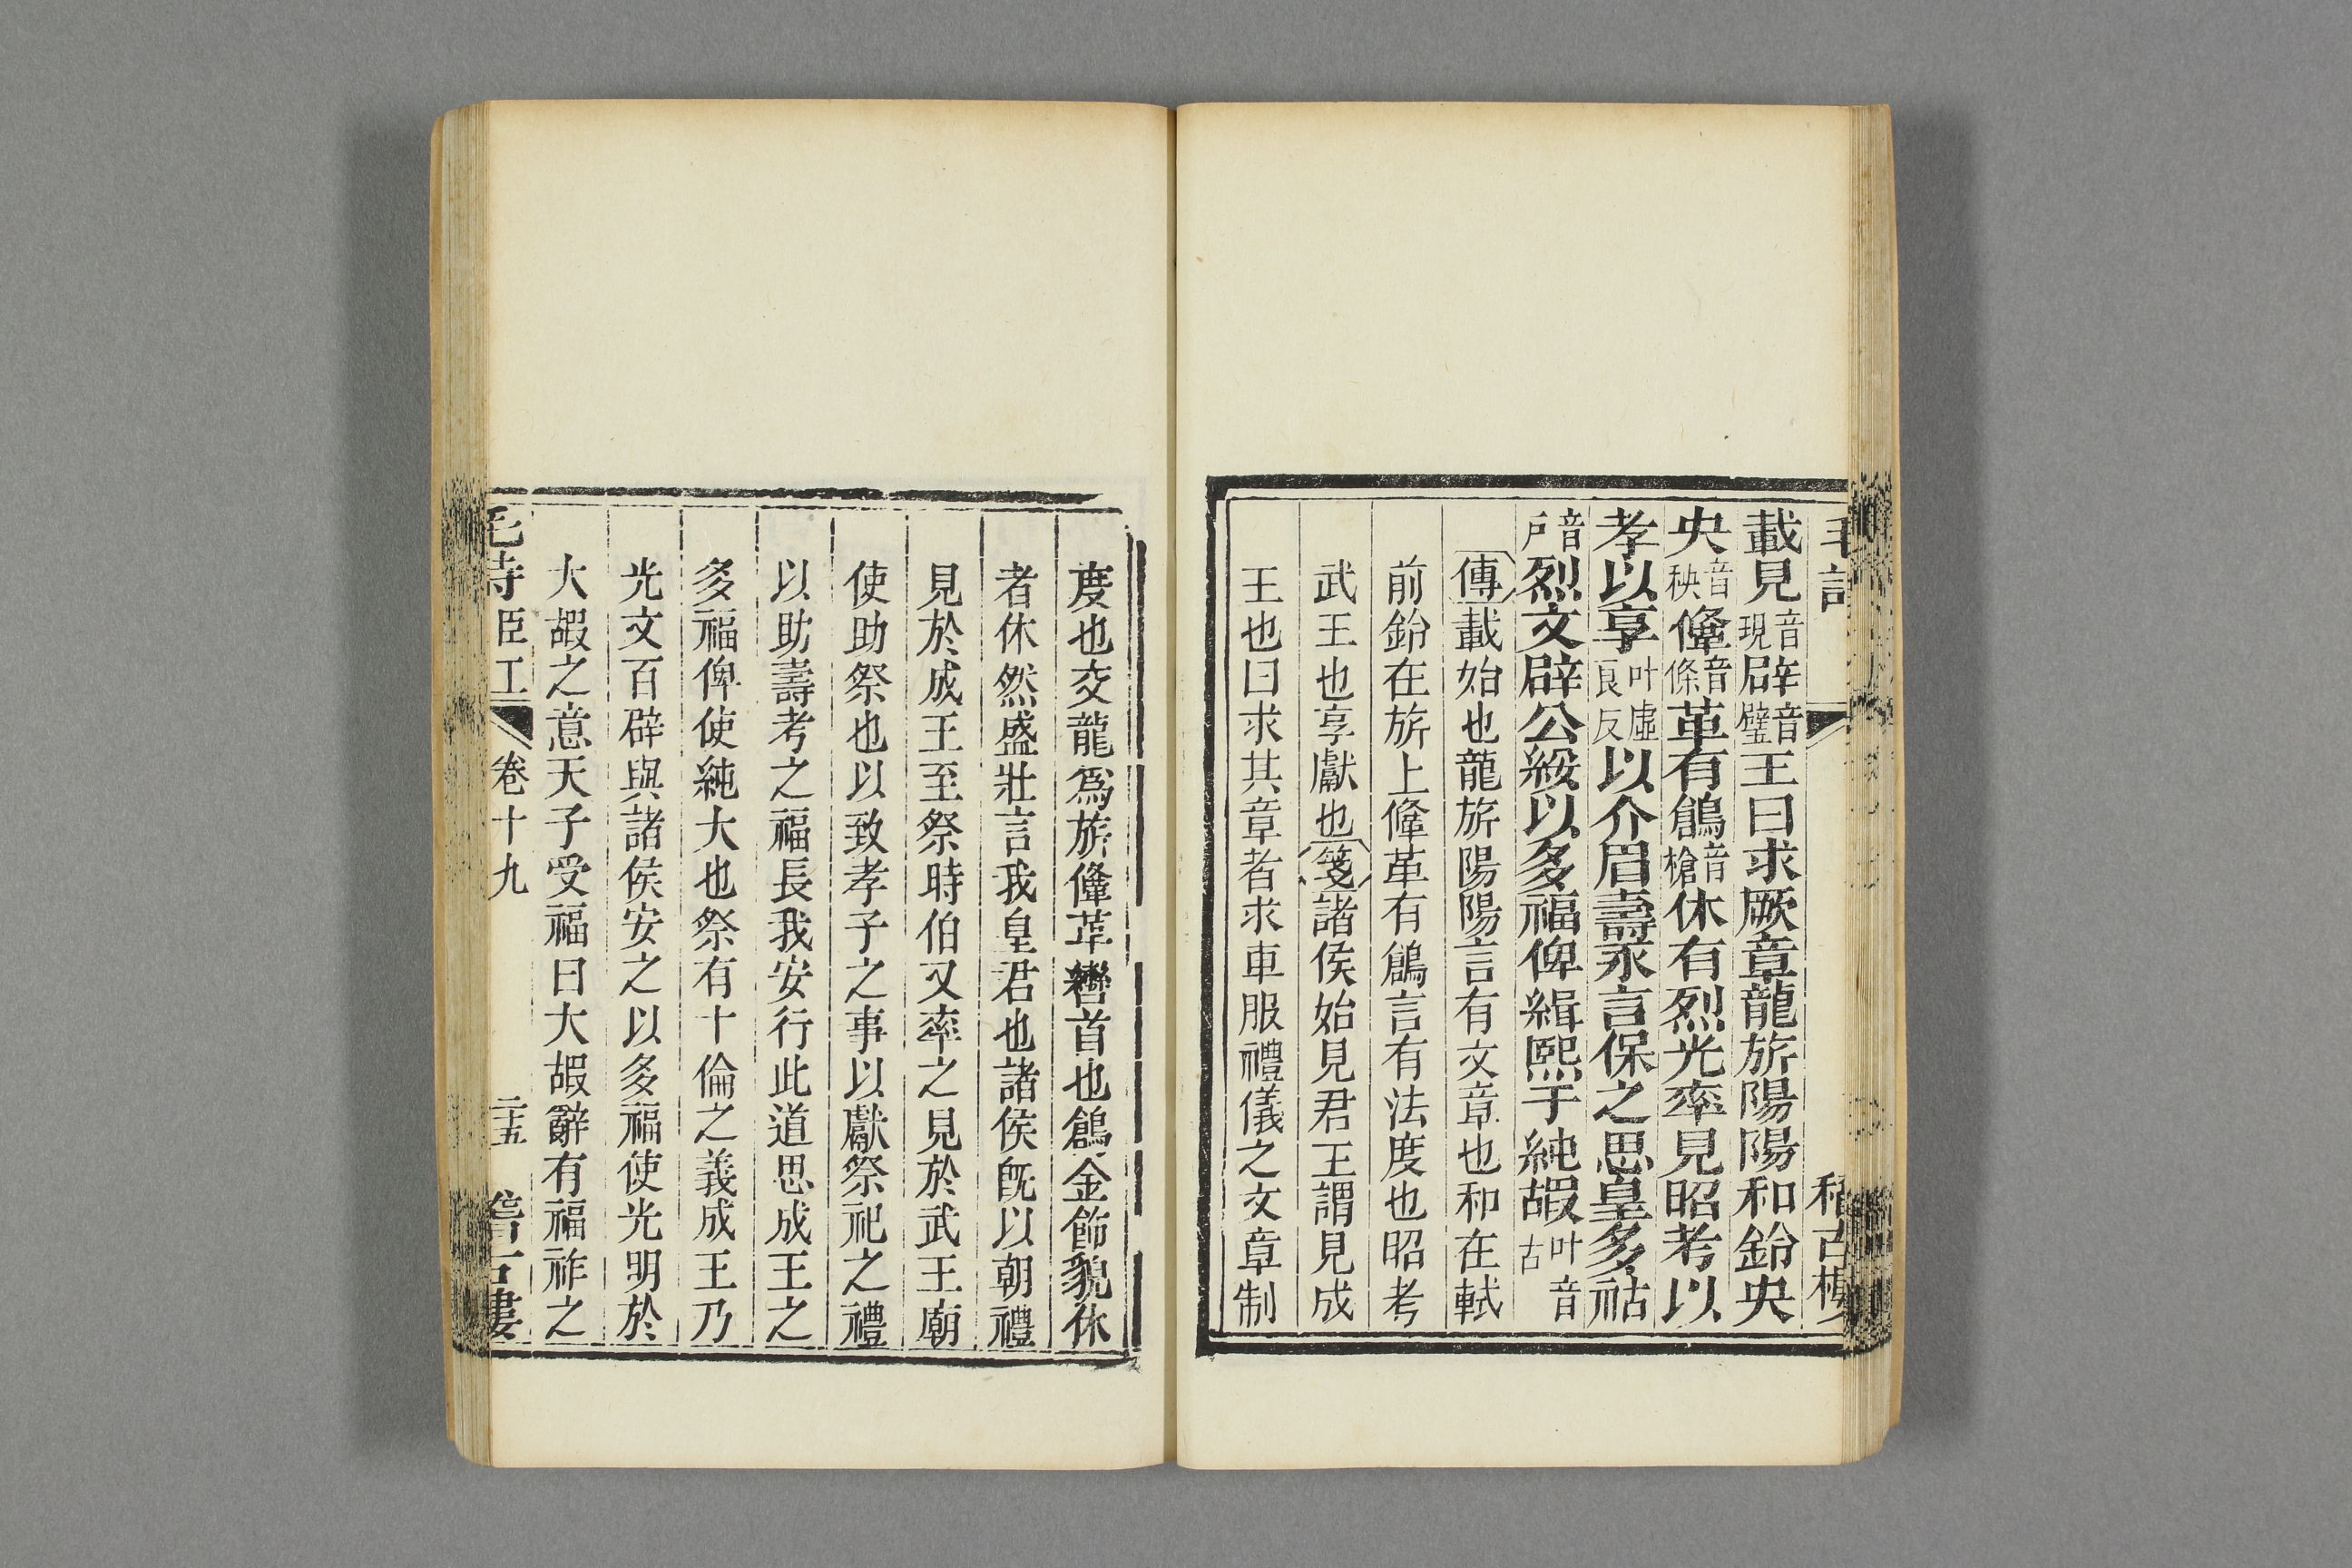 載見音現辟音璧王曰求厥章龍旂陽陽和鈴央
央音秧鞗音條革有鶬音槍休有烈光率見昭考以
孝以享叶虛良反以介眉壽永言保之思皇多祜
音戶烈文辟公綏以多福俾緝熙于純嘏叶音古
傳載始也龍旂陽陽言有文章也和在軾
前鈴在旂上鞗革有鶬言有法度也昭考
武王也享獻也箋諸侯始見君王謂見成
王也曰求其章者求車服禮儀之文章制
度也交龍爲旂鞗革轡首也鶬金飾貌休
者休然盛壯言我皇君也諸侯旣以朝禮
見於成王至祭時伯又率之見於武王廟
使助祭也以致孝子之事以獻祭祀之禮
以助壽考之福長我安行此道思成王之
多福俾使純大也祭有十倫之義成王乃
光文百辟與諸侯安之以多福使光明於
大嘏之意天子受福曰大嘏辭有福祚之
毛詩臣工 卷十九 二十五